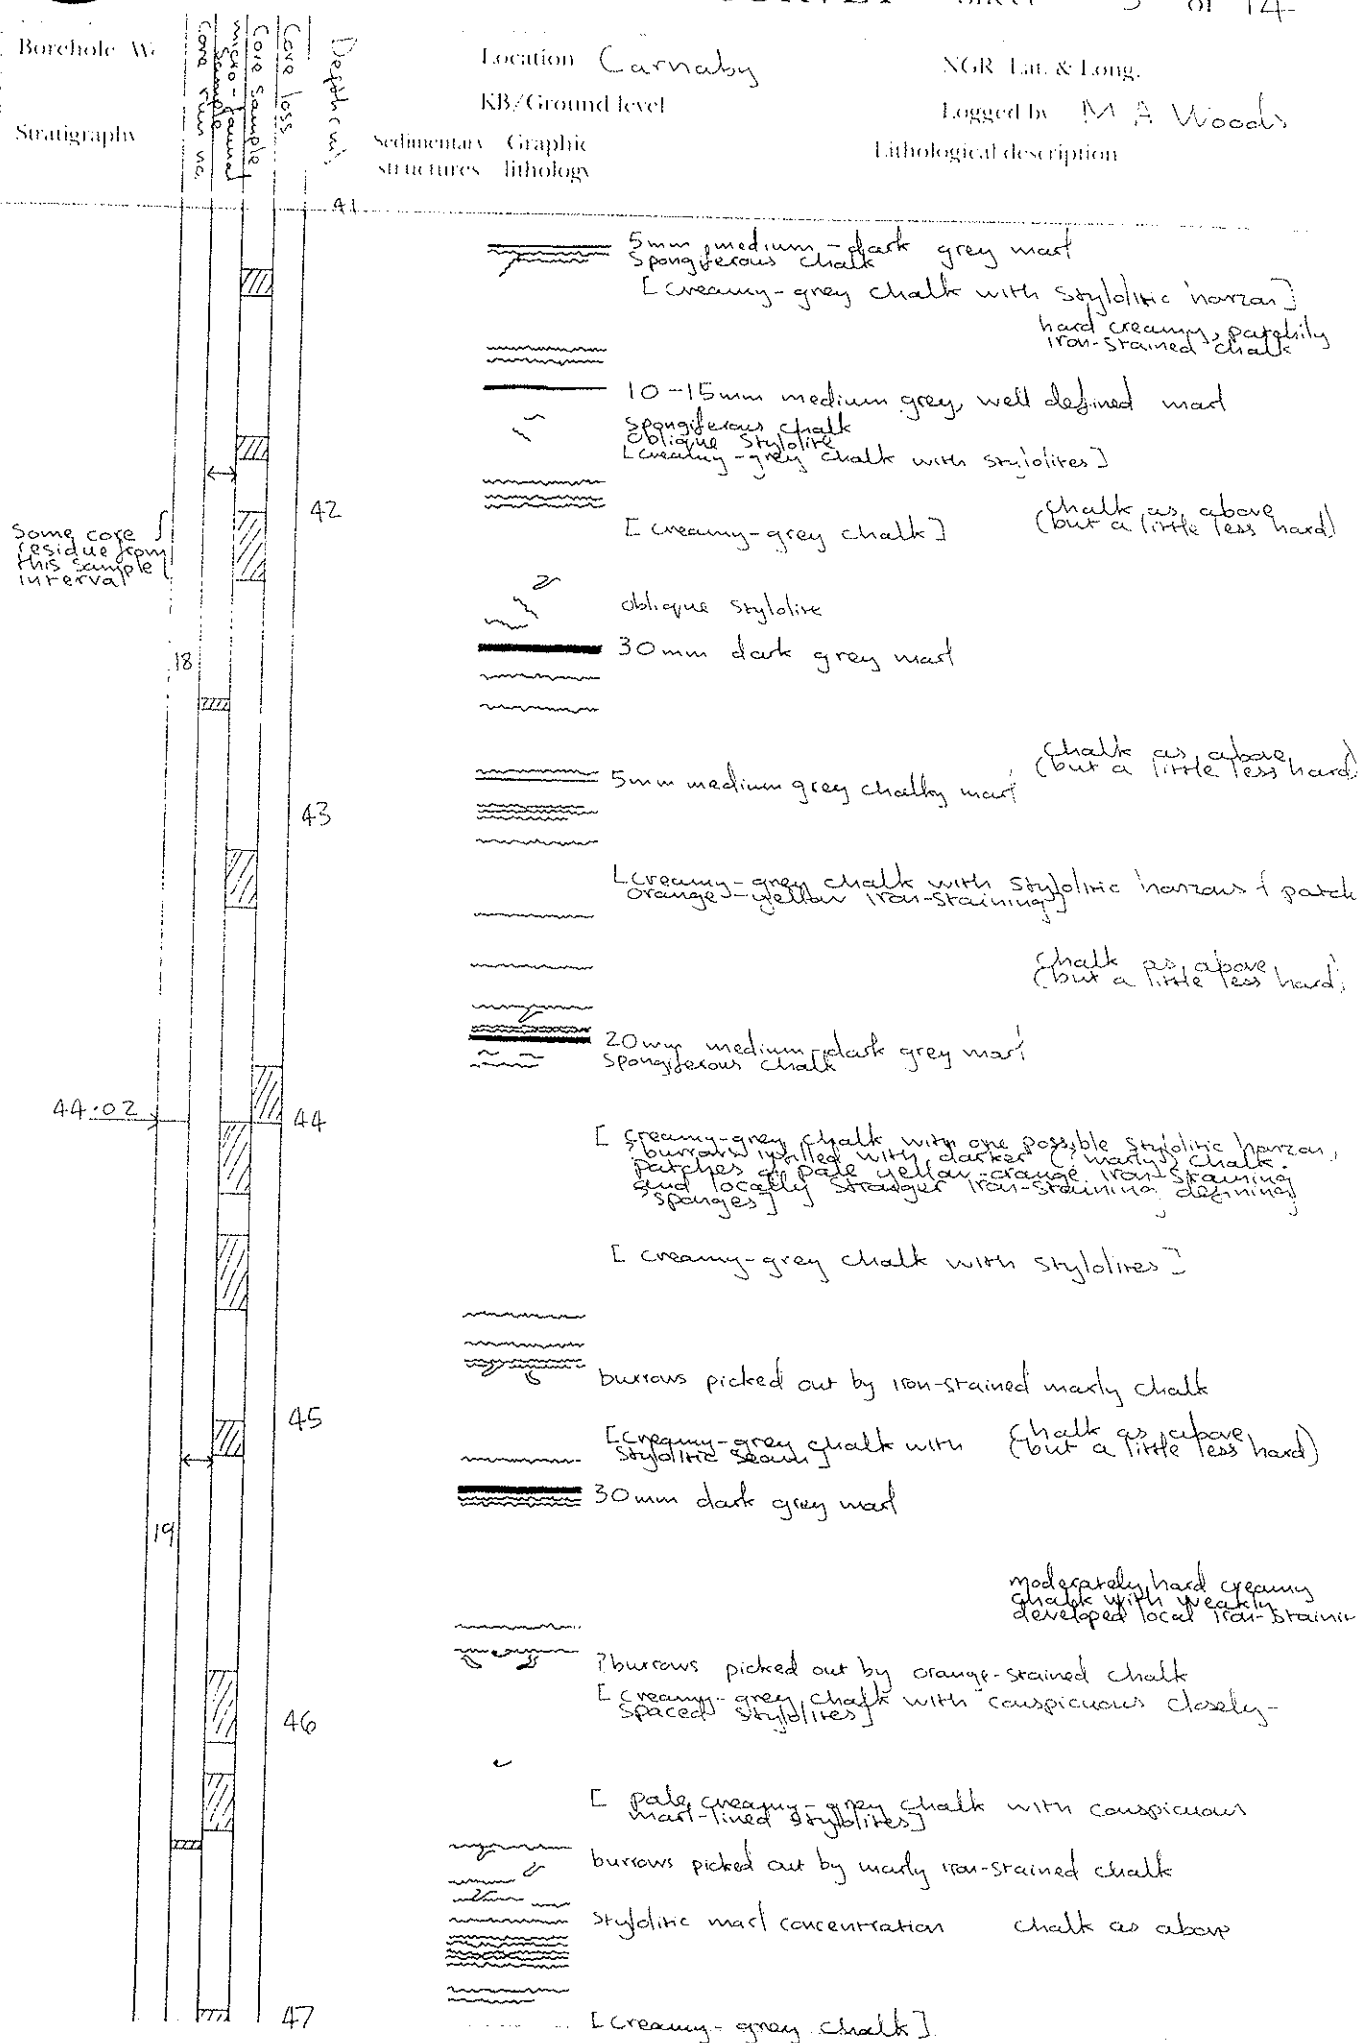 SHEET 5 of 14
Borehole
Core run no.
micro-faunal sample
Core sample
Core loss
Depth m
Location Carnaby
NGR Lat. & Long.
KB/Ground level
Logged by M A Woods
Stratigraphy
Sedimentary structures
Graphic lithology
Lithological description
41
5mm medium-dark grey marl
Spongiferous chalk
[creamy-grey chalk with stylolitic horizon]
hard creamy, patchily
iron-stained chalk
10-15mm medium grey, well defined marl
spongiferous chalk
oblique stylolite
[creamy-grey chalk with stylolites]
42
Some core
residue from
this sample
interval
[creamy-grey chalk]
chalk as above
(but a little less hard)
oblique stylolite
30mm dark grey marl
18
chalk as above
(but a little less hard)
5mm medium grey chalky marl
43
[creamy-grey chalk with stylolitic horizons & patch
orange-yellow iron-staining]
chalk as above
(but a little less hard)
20mm medium-dark grey marl
spongiferous chalk
44.02
44
[creamy-grey chalk with one possible stylolitic horizon,
burrows infilled with darker (marly) chalk.
patches of pale yellow-orange iron-staining
and locally stronger iron-staining defining
sponges]
[creamy-grey chalk with stylolites]
burrows picked out by iron-stained marly chalk
45
[creamy-grey chalk with
stylolitic seam]
chalk as above
(but a little less hard)
30mm dark grey marl
19
moderately hard creamy
chalk with weakly
developed local iron-stainin
?burrows picked out by orange-stained chalk
[creamy-grey chalk with conspicuous closely-
spaced stylolites]
46
[pale creamy-grey chalk with conspicuous
marl-lined stylolites]
burrows picked out by marly iron-stained chalk
stylolitic marl concentration
chalk as above
47
[creamy-grey chalk]